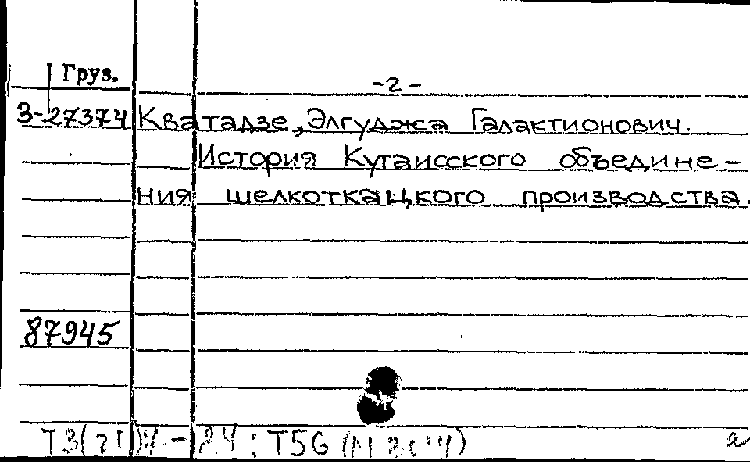 Груз.
-2-
З-27374 Кватадзе, Элгуджа Галактионович.
История Кутаисского объедине-
ния шелкоткацкого производства.
87945